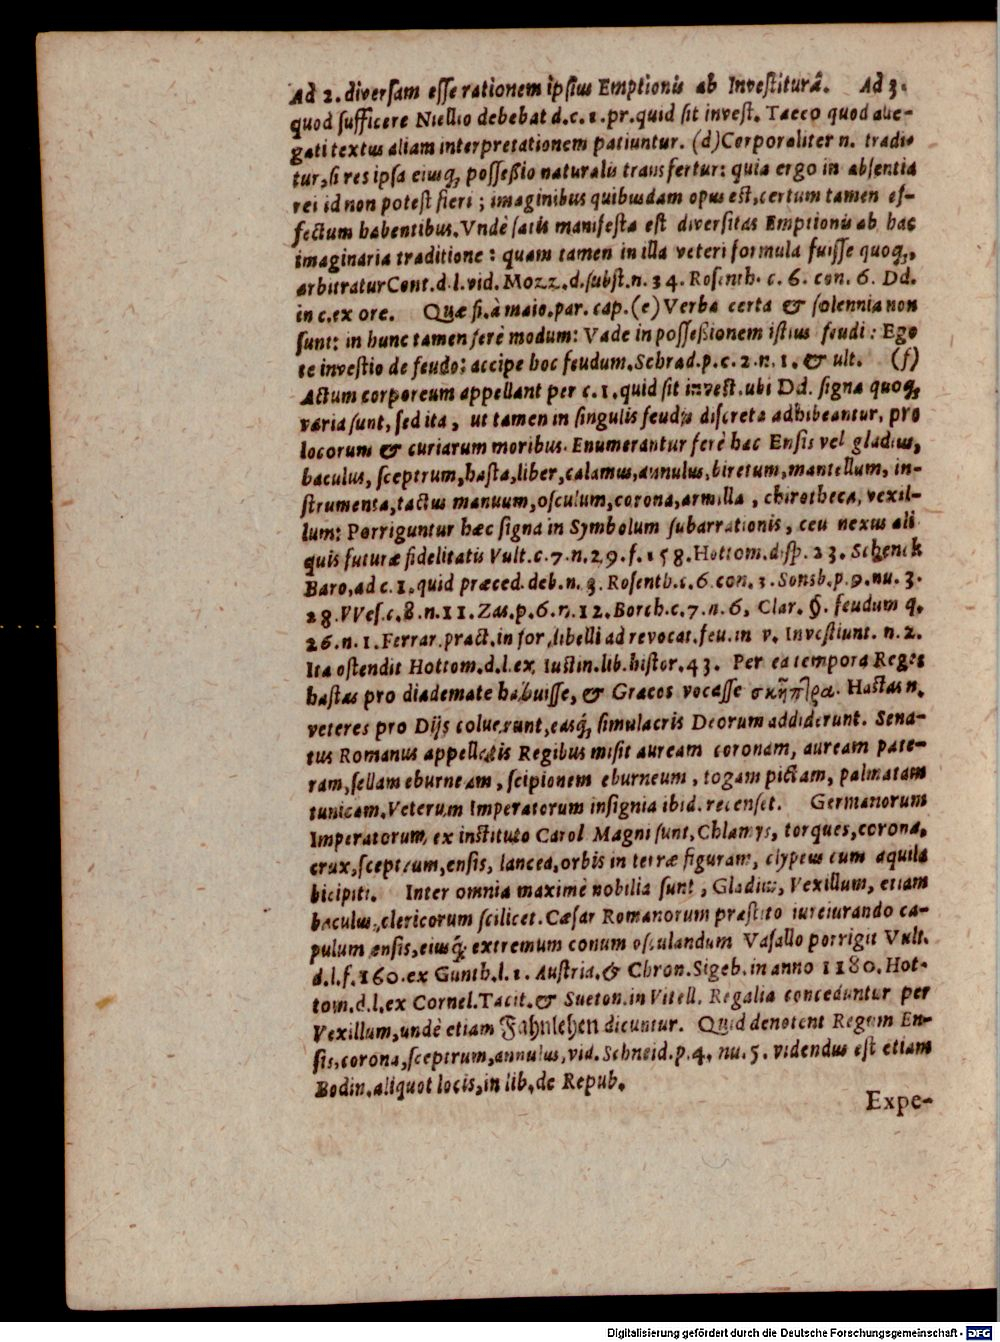 Ad 2. diverſam eſſe rationem ipſius Emptionis ab Inveſtiturâ. Ad 3.
quod ſufficere Niellio debebat d.c.1.pr.quid ſit inveſt. Taceo quod alle-
gati textus aliam interpretationem patiuntur. (d) Corporaliter n. tradi-
tur, ſi res ipſa eiusq́; poſſeßio naturalis transfertur: quia ergo in abſentia
rei id non poteſt fieri; imaginibus quibusdam opus eſt, certum tamen ef-
fectum habentibus. Vndè ſatis manifeſta eſt diverſitas Emptionis ab hac
imaginaria traditione: quam tamen in illa veteri formula fuiſſe quoq́;,
arbitratur Cont.d.l.vid. Mozz.d.ſubſt.n. 34. Roſenth. c. 6. con. 6. Dd.
in c.ex ore. Quæ ſi.à maio.par. cap. (e) Verba certa & ſolennia non
ſunt: in hunc tamen ferè modum: Vade in poſſeßionem iſtius feudi: Ego
te inveſtio de feudo: accipe hoc feudum. Schrad.p.c.2.n.1.& ult. (f)
Actum corporeum appellant per c.1.quid ſit inveſt.ubi Dd. ſigna quoq́;
varia ſunt, ſed ita, ut tamen in ſingulis feudis diſcreta adhibeantur, pro
locorum & curiarum moribus. Enumerantur ferè hæc Enſis vel gladius,
baculus, ſceptrum, haſta, liber, calamus, annulus, biretum, mantellum, in-
ſtrumenta, tactus manuum, oſculum, corona, armilla, chirotheca, vexil-
lum: Porriguntur hæc ſigna in Symbolum ſubarrationis, ceu nexus ali
quis futuræ fidelitatis Vult.c.7.n.29.f.158.Hottom.diſp.23. Schenck
Baro, ad c.1.quid præced.deb.n.3. Roſenth.c.6.con.3.Sonsb.p.9.nu.3.
28.VVeſ.c.8.n.11.Zas.p.6.n.12.Borch.c.7.n.6, Clar. §. feudum q.
26.n.1.Ferrar.pract.in for.libelli ad revocat.feu.in v. Inveſtiunt. n.2.
Ita oſtendit Hottom.d.l.ex Iuſtin.lib.hiſtor.43. Per ea tempora Reges
haſtas pro diademate habuiſſe, & Græcos vocaſſe σκῆπτρα. Haſtas n.
veteres pro Dijs coluerunt, easq́; ſimulacris Deorum addiderunt. Sena-
tus Romanus appellatis Regibus miſit auream coronam, auream pate-
ram, ſellam eburneam, ſcipionem eburneum, togam pictam, palmatam
tunicam. Veterum Imperatorum inſignia ibid. recenſet. Germanorum
Imperatorum, ex inſtituto Carol Magni ſunt, Chlamys, torques, corona,
crux, ſceptrum, enſis, lancea, orbis in terræ figuram, clypeus cum aquila
bicipiti. Inter omnia maximè nobilia ſunt, Gladius, Vexillum, etiam
baculus, clericorum ſcilicet. Cæſar Romanorum præſtito iureiurando ca-
pulum enſis, eiusq́; extremum conum oſculandum Vaſallo porrigit Vult.
d.l.f.160.ex Gunth.l.1. Auſtria.& Chron.Sigeb.in anno 1180.Hot-
tom.d.l.ex Cornel.Tacit.& Sueton.in Vitell. Regalia conceduntur per
Vexillum, undè etiam Fahnlehen dicuntur. Quid denotent Regum En-
ſis, corona, ſceptrum, annulus, vid. Schneid.p.4. nu.5. videndus eſt etiam
Bodin.aliquot locis, in lib. de Repub.
Expe-
Digitalisierung gefördert durch die Deutsche Forschungsgemeinschaft - DFG